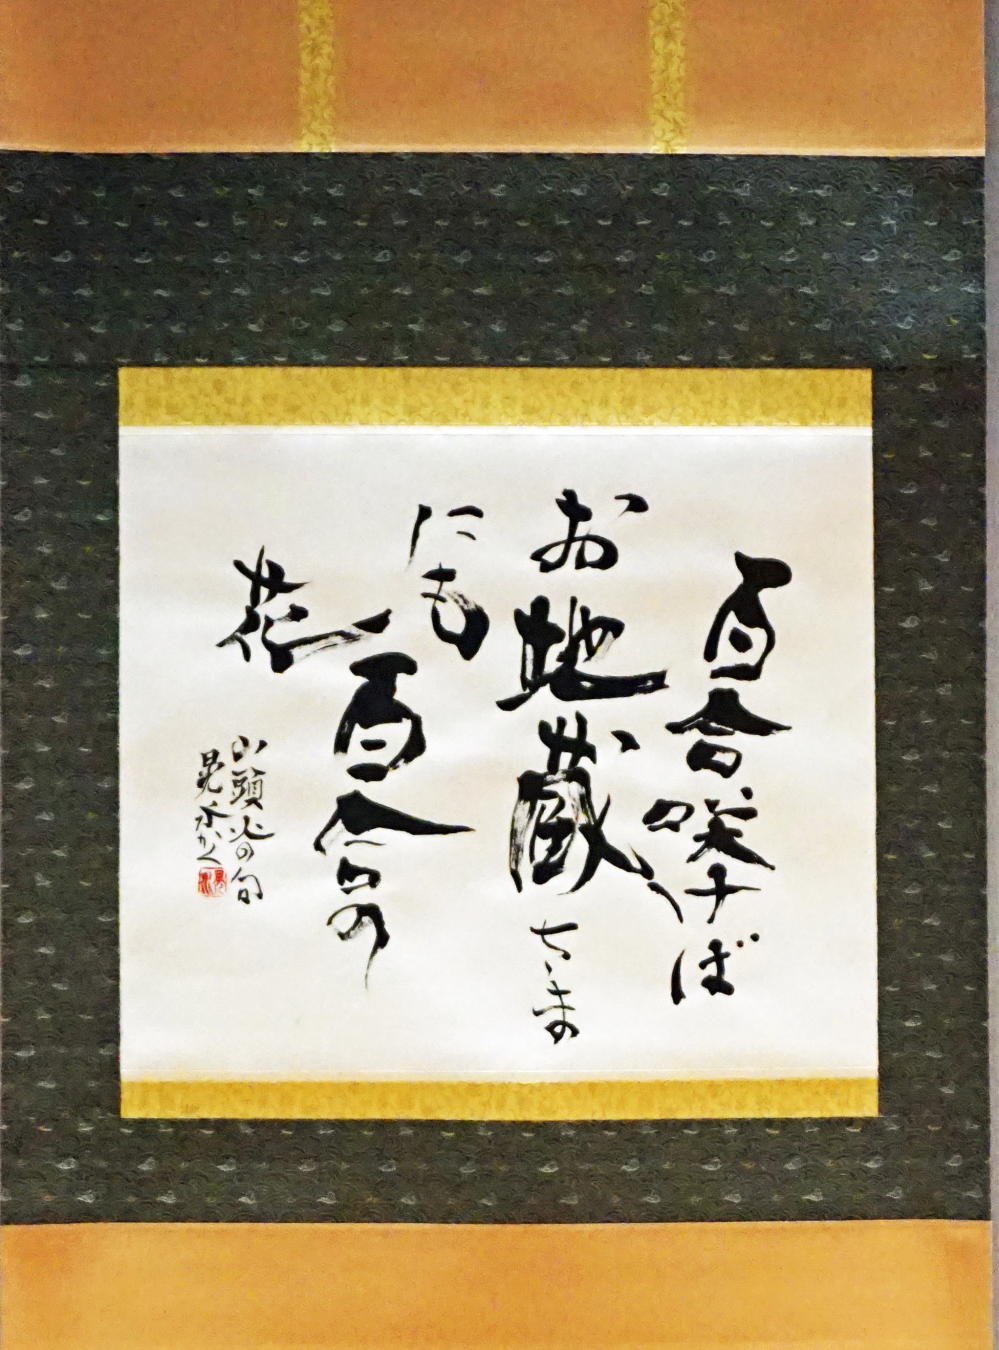 百合咲けば
お地蔵さま
にも
百合の
花
山頭火の句
晃水かく